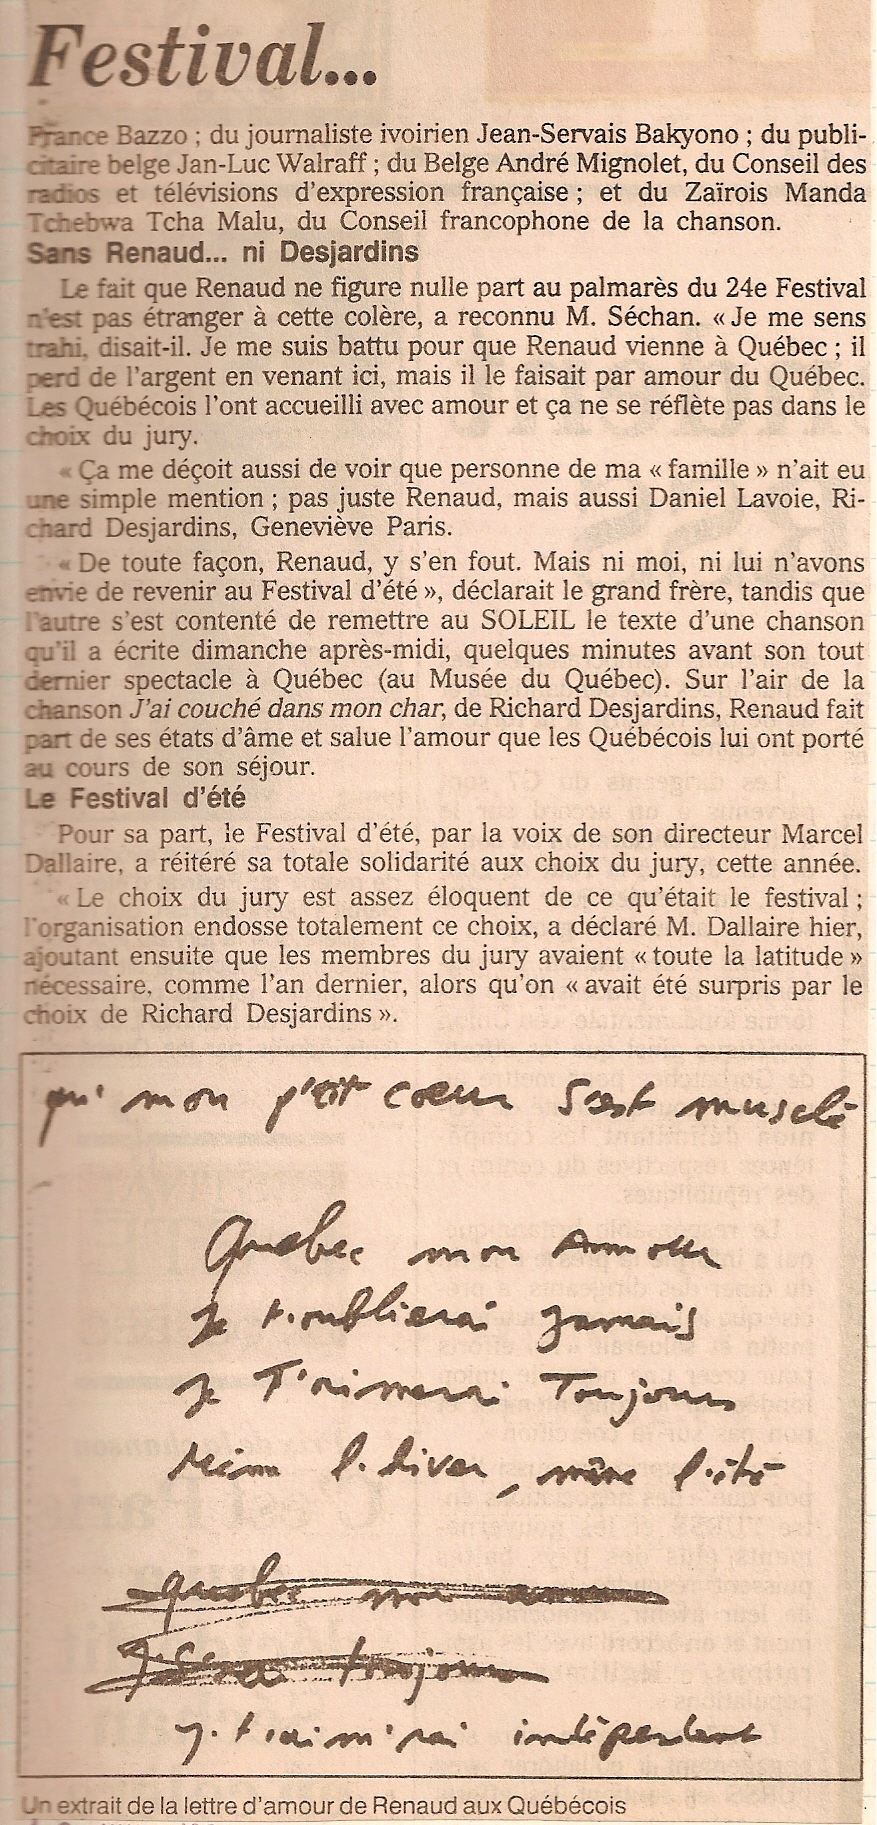 Festival...
France Bazzo ; du journaliste ivoirien Jean-Servais Bakyono ; du publi-
citaire belge Jan-Luc Walraff ; du Belge André Mignolet, du Conseil des
radios et télévisions d'expression française ; et du Zaïrois Manda
Tchebwa Tcha Malu, du Conseil francophone de la chanson.
Sans Renaud... ni Desjardins
Le fait que Renaud ne figure nulle part au palmarès du 24e Festival
n'est pas étranger à cette colère, a reconnu M. Séchan. « Je me sens
trahi, disait-il. Je me suis battu pour que Renaud vienne à Québec ; il
perd de l'argent en venant ici, mais il le faisait par amour du Québec.
Les Québécois l'ont accueilli avec amour et ça ne se réflète pas dans le
choix du jury.
« Ça me déçoit aussi de voir que personne de ma « famille » n'ait eu
une simple mention ; pas juste Renaud, mais aussi Daniel Lavoie, Ri-
chard Desjardins, Geneviève Paris.
« De toute façon, Renaud, y s'en fout. Mais ni moi, ni lui n'avons
envie de revenir au Festival d'été », déclarait le grand frère, tandis que
l'autre s'est contenté de remettre au SOLEIL le texte d'une chanson
qu'il a écrite dimanche après-midi, quelques minutes avant son tout
dernier spectacle à Québec (au Musée du Québec). Sur l'air de la
chanson J'ai couché dans mon char, de Richard Desjardins, Renaud fait
part de ses états d'âme et salue l'amour que les Québécois lui ont porté
au cours de son séjour.
Le Festival d'été
Pour sa part, le Festival d'été, par la voix de son directeur Marcel
Dallaire, a réitéré sa totale solidarité aux choix du jury, cette année.
« Le choix du jury est assez éloquent de ce qu'était le festival ;
l'organisation endosse totalement ce choix, a déclaré M. Dallaire hier,
ajoutant ensuite que les membres du jury avaient « toute la latitude »
nécessaire, comme l'an dernier, alors qu'on « avait été surpris par le
choix de Richard Desjardins ».
qu' mon p'tit coeur s'est musclé
Quebec mon Amour
Je t'oublierai jamais
Je T'aimerai Toujours
même l'hiver, même l'été
Quebec mon amour
toujours
J't'aim'rai indépendant
Un extrait de la lettre d'amour de Renaud aux Québécois